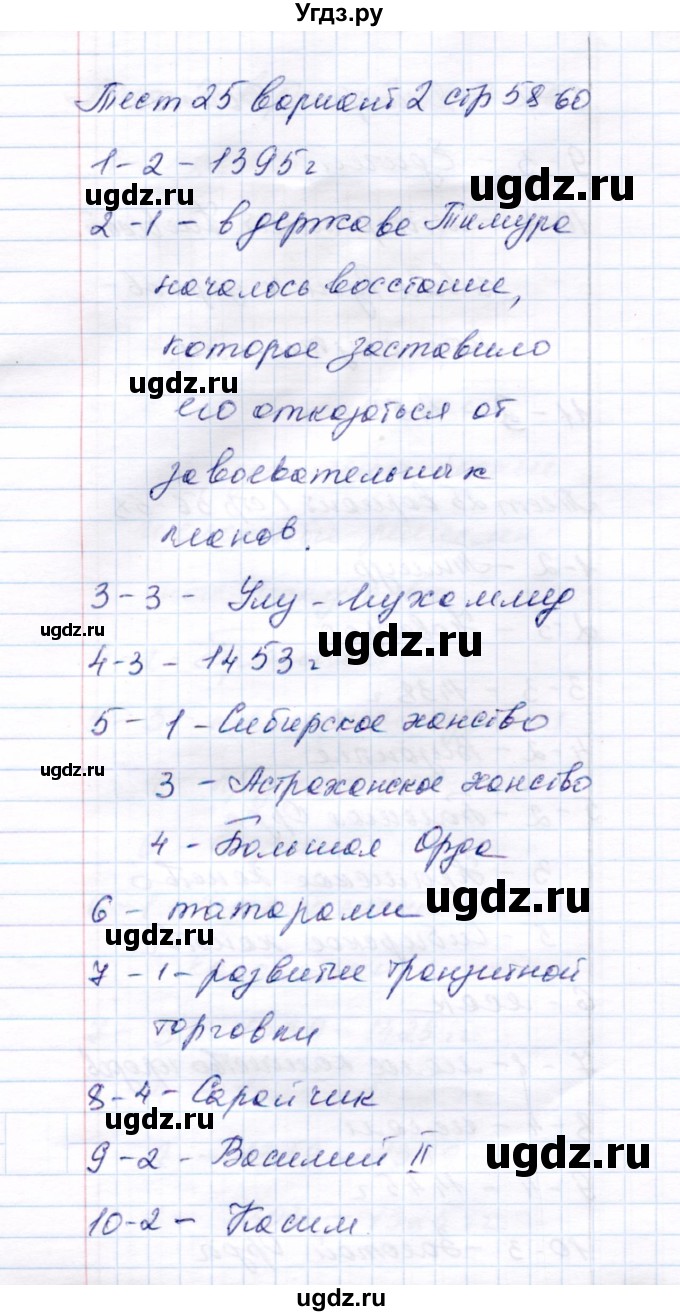 Угдз.ру
Тест 25 вариант 2 стр 58 60
1-2 - 1395 г
ugdz.ru
ugdz.ru
2-1 - в державе Тимура
началось восстание,
которое заставило
ugdz.ru
его отказаться от
завоевательных
планов.
3-3 - Улу-Мухаммид
ugdz.ru
ugdz.ru
4-3 - 1453 г
5 - 1 - Сибирское ханство
ugdz.ru
3 - Астраханское ханство
4 - Большая Орда
ugdz.ru
6 - татарами
ugdz.ru
7 - 1 - развитие транзитной
торговли
8-4 - Сарайчик
ugdz.ru
9-2 - Василий II
ugdz.ru
10-2 - Касим
ugdz.ru